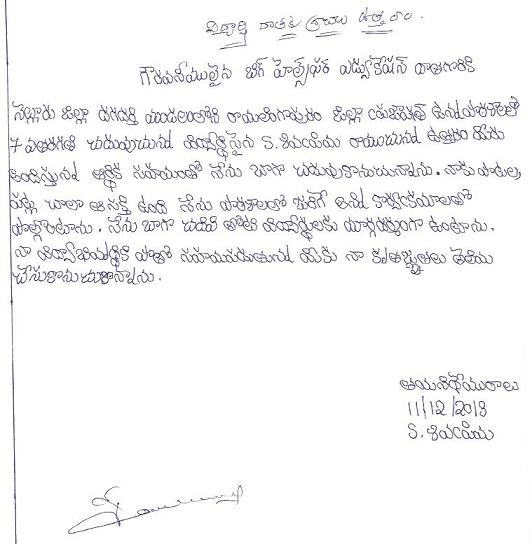 విద్యార్థి దాతకు వ్రాయు ఉత్తరం.
గౌరవనీయులైన బిగ్ హెల్ప్ ఫర్ ఎడ్యుకేషన్ దాతగారికి
నెల్లూరు జిల్లా దగదర్తి మండలంలోని రాయలింగాపురం జిల్లా పరిషత్ ఉన్నతపాఠశాలలో
7 వతరగతి చదువుచున్న విద్యార్థినైన S. శివమ్మ రాయుచున్న ఉత్తరం మీరు
అందిస్తున్న ఆర్థిక సహాయంతో నేను బాగా చదువుకొనుచున్నాను. నాకు పాటలు,
ఆటలు చాలా ఆసక్తి ఉంది నేను పాఠశాలలో జరిగే అన్ని కార్యక్రమాలలో
పాల్గొంటాను. నేను బాగా చదివి తోటి విద్యార్థులకు మార్గదర్శంగా ఉంటాను.
నా విద్యాభివృద్ధికి సహాయపడుతున్న మీకు నా కృతజ్ఞతలు తెలియ
చేసుకొనుచున్నాను.
11/12/2013
S. శివమ్మ